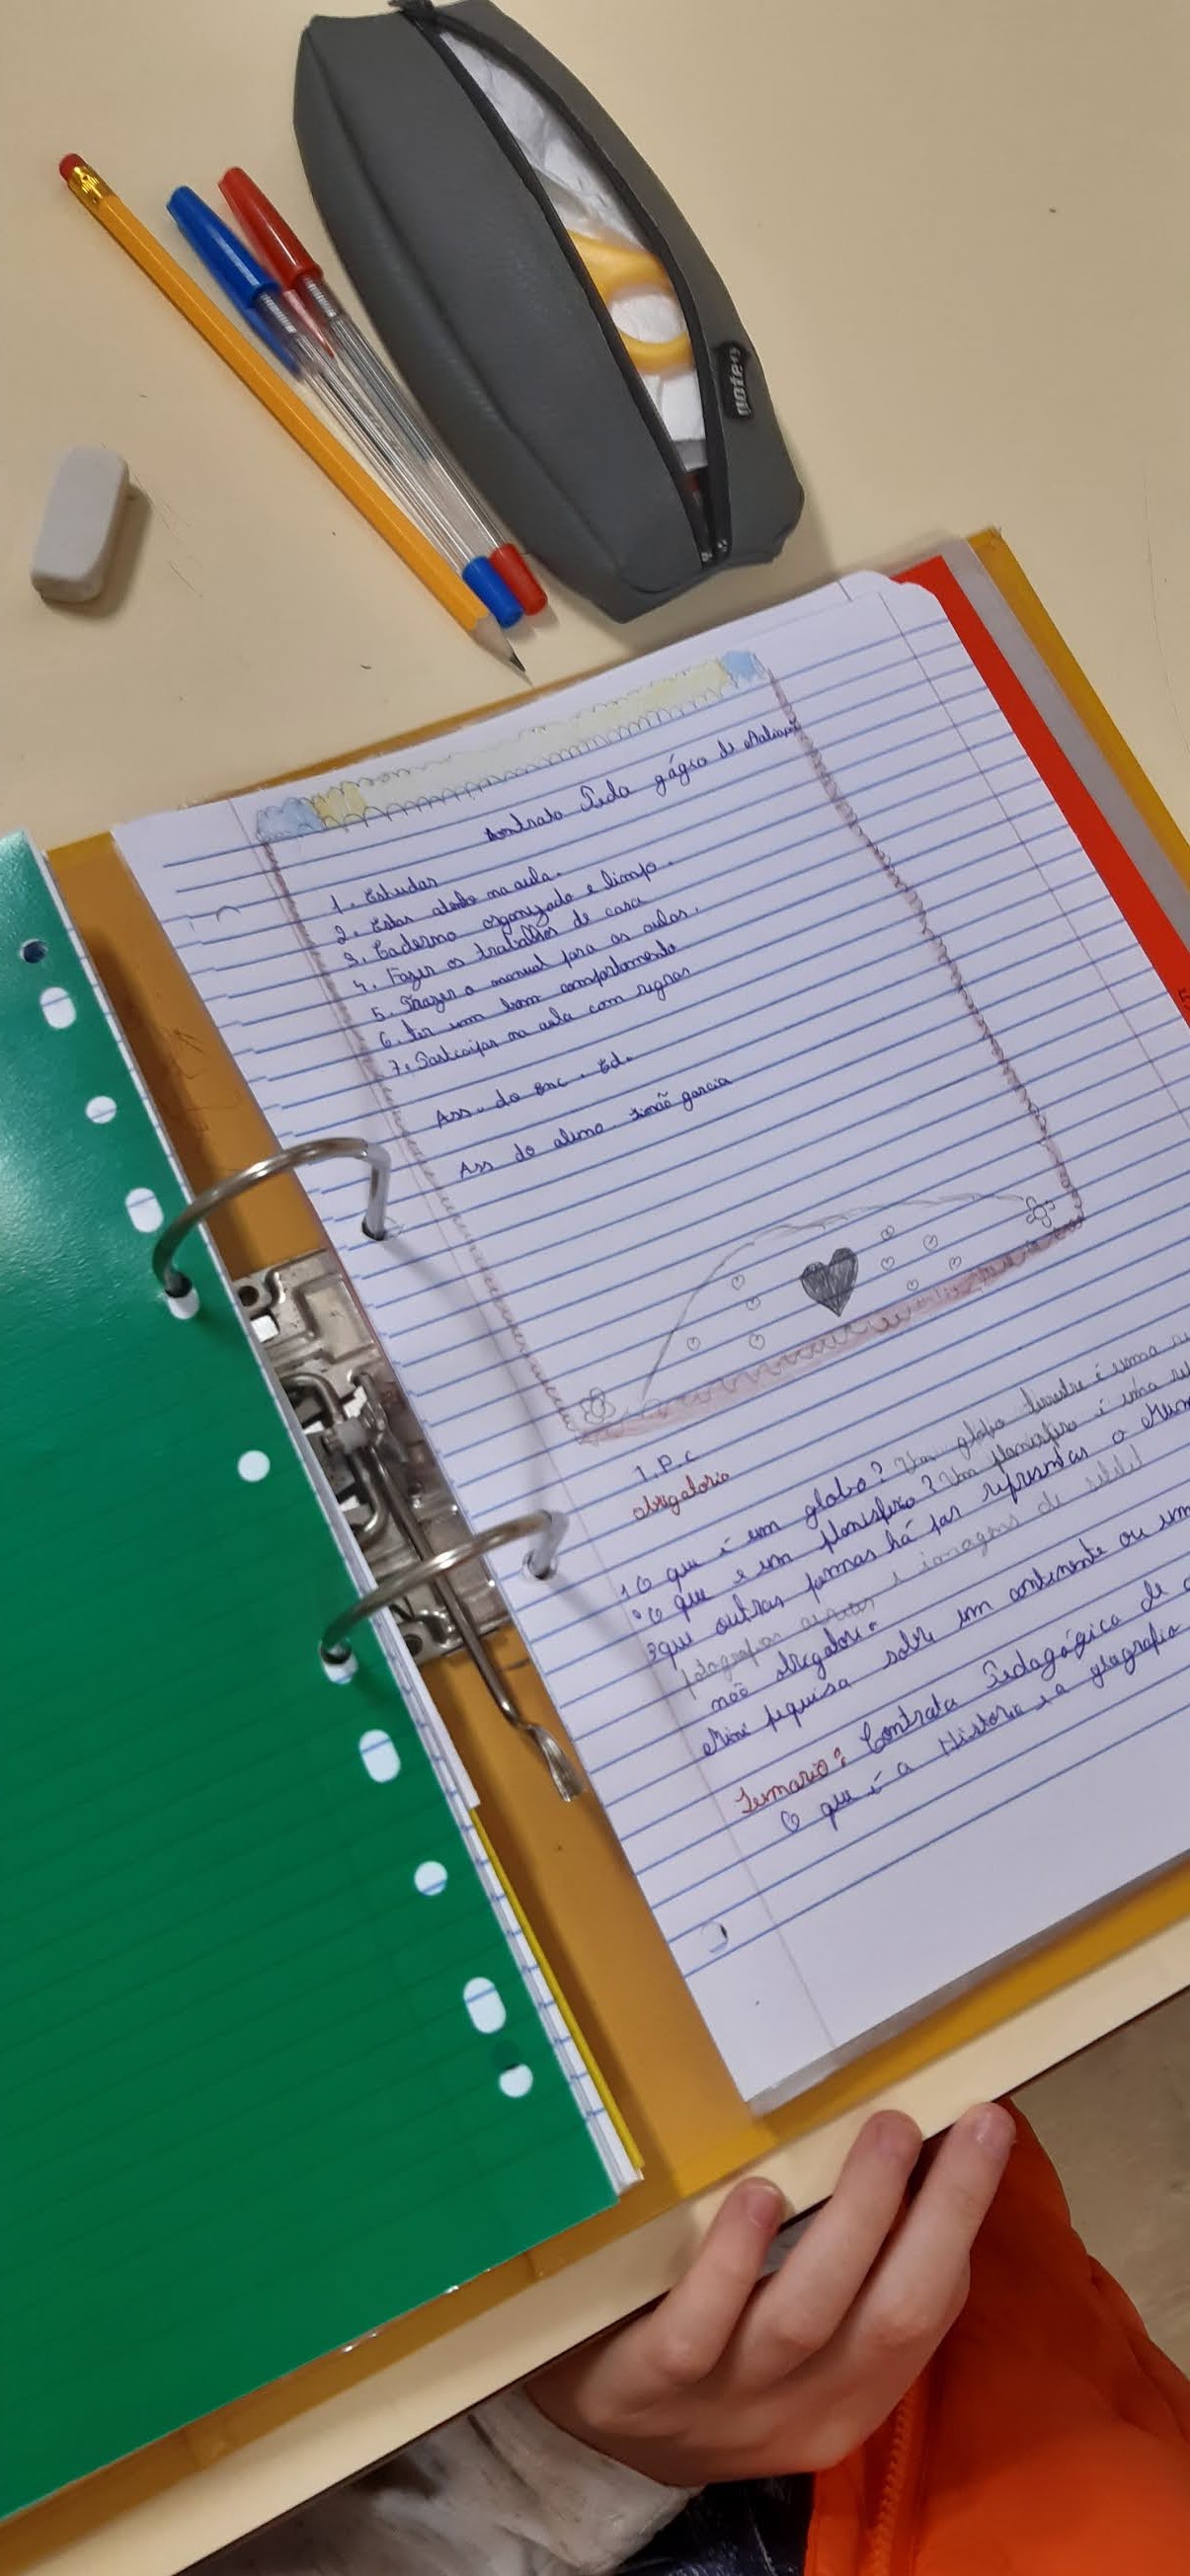 noteg
Contrato Peda gágio de Avaliação
1. Estudar
2. Estar atento na aula.
3. Caderno organizado e limpo.
4. Fazer os trabalhos de casa
5. Trazer o manual para as aulas.
6. ter um bom comportamento
7. Partcipar na aula com regras
Ass. do Enc. Ed.
Ass do aluno Simão garcia
T.P.C
obrigatorio
1 O que é um globo? Um globo terrestre é uma
2 O que e um planisferio? Um planisfero é uma
3 que outras formas há par represntar o Mun
fotografias aereas e imagens de
não obrigatorio
Mini pequisa sobre um continente ou um
Sumario: Contrato Pedagógico de
O que é a Historia e a geografia